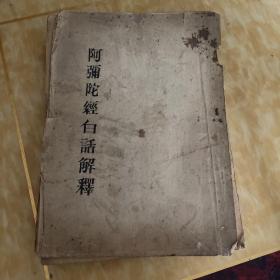 阿彌陀經白話解釋